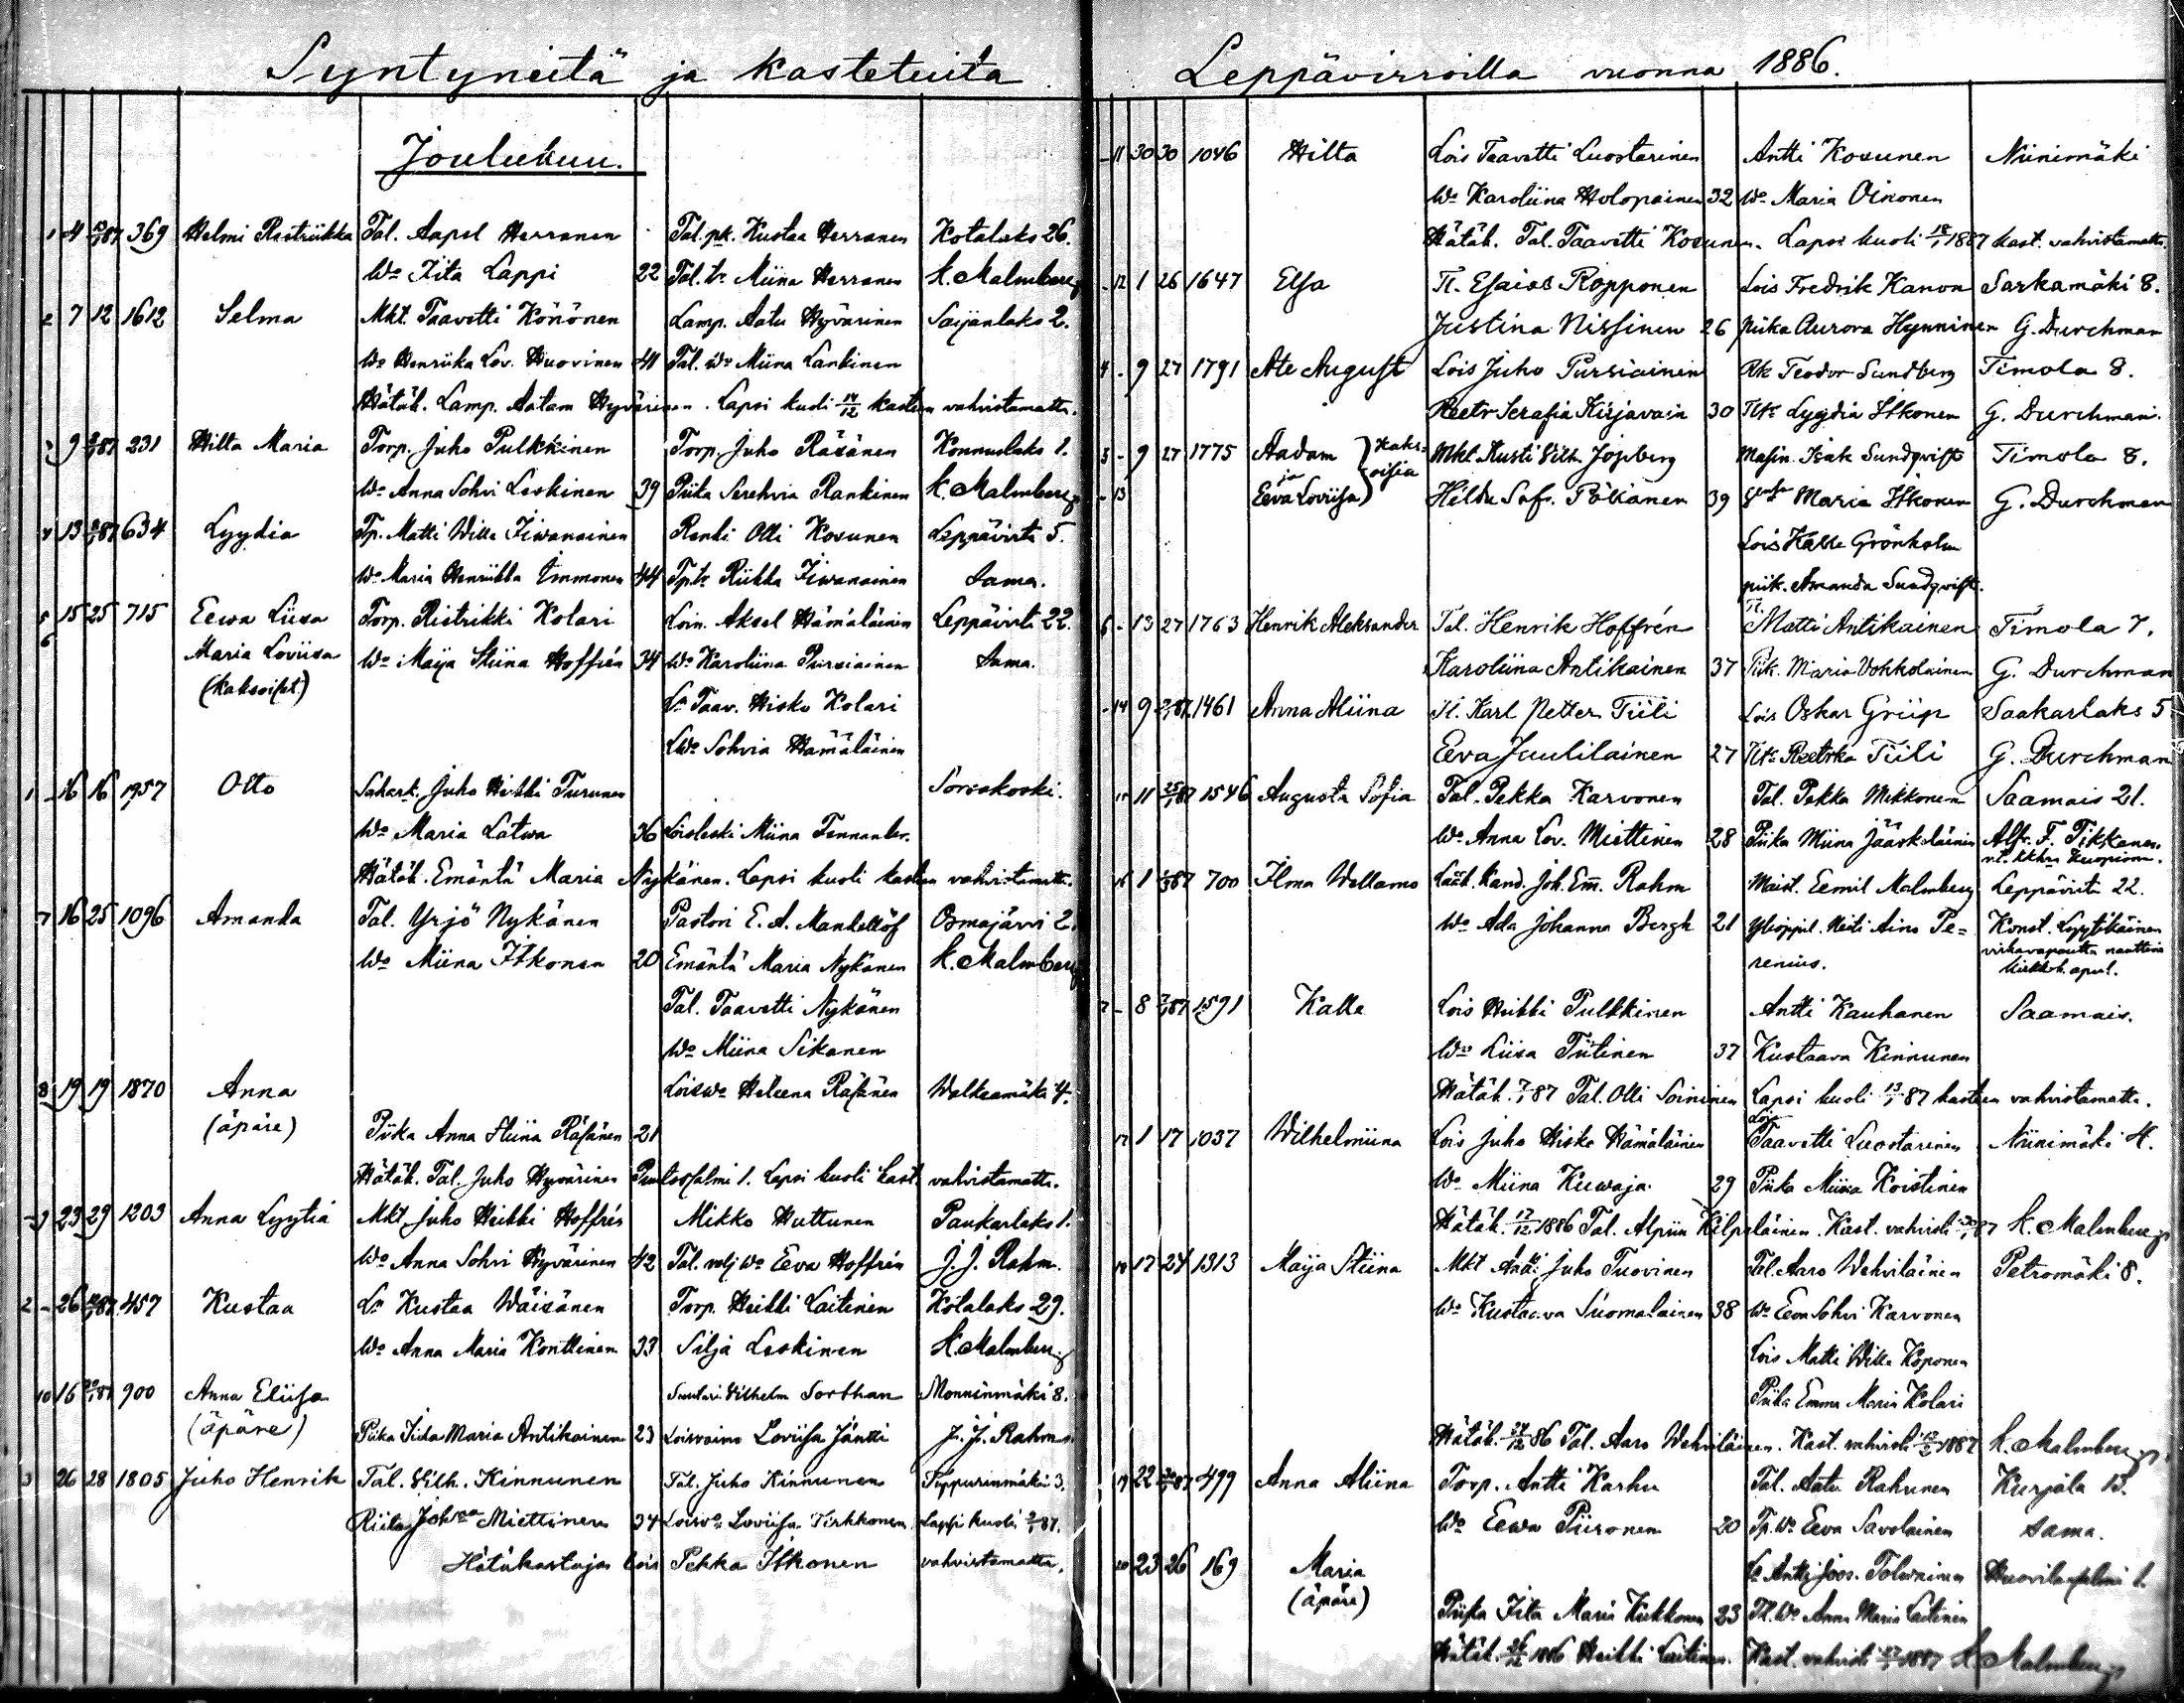 Syntyneitä ja kastetuita
Joulukuu.
1 4 87 369 Helmi Raatriikka Tal. Aapel Herranen Tal. pk. Kustaa Herranen Kotalaks 26.
Wo Iita Lappi 22 Tal. tr. Miina Herranen K. Malmberg
2 7 12 1612 Selma Mkt. Taavetti Könönen Lamp. Aatu Hyvärinen Saijanlaks 2.
Wo Henriika Lov. Huovinen 41 Tal. Wo Miina Lankinen
Hätäk. Lamp. Aatam Hyvärinen. Lapsi kuoli 14/12 kasteen vahvistamatta.
9 87 231 Hilta Maria Torp. Juho Pulkkinen Torp. Juho Räsänen Konnuslaks 1.
Wo Anna Sohvi Leskinen 39 Piika Serehvia Rankinen K. Malmberg
13 87 634 Lyydia Tp. Matti Wille Iiwanainen Renki Olli Kosunen Leppävirta 5.
Wo Maria Henriikka Immonen 44 Tp. tr. Riikka Iiwanainen Sama.
5 15 25 715 Eewa Liisa Torp. Ristrikki Kolari Loin. Aksel Hämäläinen Leppävirta 22.
6 Maria Loviisa Wo Maija Stiina Hoffrén 34 Wo Karoliina Pursiainen Sama.
(kaksoiset) Ls Taav. Hisko Kolari
LWo Sohvia Hämäläinen
1 16 16 1957 Otto Sahark. Juho Heikki Turunen Sorsakoski.
Wo Maria Latwa 36 Loisleski Miina
Hätäk. Emäntä Maria Nykänen. Lapsi kuoli kasteen vahvistamatta.
7 16 25 1096 Amanda Tal. Yrjö Nykänen Pastori E. A. Mankellöf Osmajärvi 2.
Wo Miina Itkonen 20 Emäntä Maria Nykänen K. Malmberg
Tal. Taavetti Nykänen
Wo Miina Sikanen
8 19 19 1870 Anna Loiswo Heleena Räsänen Walkeamäki 4.
(äpäre) Piika Anna Stiina Räsänen 21
Hätäk. Tal. Juho Hyvärinen Puutossalmi 1. Lapsi kuoli kast. vahvistamatta.
23 29 1203 Anna Lyytia Mkt Juho Heikki Hoffrén Mikko Huttunen Paukarlaks 1.
Wo Anna Sohvi Hyvärinen 42 Tal. velj. Wo Eeva Hoffrén J. J. Rahm.
2 26 87 457 Kustaa Ls Kustaa Wäisänen Torp. Heikki Laitinen Kotalaks 29.
Wo Anna Maria Konttinen 33 Silja Leskinen K. Malmberg
10 16 87 900 Anna Eliisa Suutari Vilhelm Sorthan Monninmäki 8.
(äpäre) Piika Iida Maria Antikainen 23 Loisvaimo Loviisa Jäntti J. J. Rahm.
3 26 28 1805 Juho Henrik Tal. Vilh. Kinnunen Tal. Juho Kinnunen Tuppurinmäki 3.
Riita Johna Miettinen 34 Loisvo Loviisa Tirkkonen Lapsi kuoli 87.
Hätäkastaja lois Pekka Itkonen vahvistamatta.
Leppävirroilla vuonna 1886.
11 30 30 1046 Hilta Lois Taavetti Luostarinen Antti Kosunen Niinimäki
Wo Karoliina Holopainen 32 Wo Maria Oinonen
Hätäk. Tal. Taavetti Kosunen. Lapsi kuoli 18/1 1887 kast. vahvistamatta.
12 1 26 1647 Elsa Tl. Esaias Ropponen Lois Fredrik Kanon Sarkamäki 8.
Justina Nissinen 26 Piika Aurora Hynninen G. Durchman
4 9 27 1791 Ate August Lois Juho Pursiainen Rk Teodor Sundberg Timola 8.
Reetr Serafia Kirjavain 30 Lyydia Itkonen G. Durchman.
5 9 27 1775 Aadam ja kaksoisia Mkt. Kusti Vilh. Josberg Masin. Isak Sundqvist Timola 8.
13 Eeva Loviisa Hilda Sof. Pökänen 39 Maria Itkonen G. Durchman
Lois Kalle Grönholm
piik. Amanda Sundqvist.
6 13 27 1763 Henrik Aleksander Tal. Henrik Hoffrén Tl. Matti Antikainen Timola 7.
Karoliina Antikainen 37 Piik. Maria Vokkolainen G. Durchman
14 9 87 1461 Anna Aliina Tl. Karl Petter Tiili Lois Oskar Griip Saakarlaks 5
Eeva Juulilainen 27 Reetrka Tiili G. Durchman
15 11 87 1546 Augusta Sofia Tal. Pekka Karvonen Tal. Pekka Mikkonen Saamais 21.
Wo Anna Lov. Miettinen 28 Piika Miina Jääskeläinen Alfr. F. Tikkanen
v.t. kkhra Kuopion.
16 1 87 700 Ilma Wellamo Lääk. kand. Joh. Em. Rahm Maist. Eemil Malmberg Leppävirta 22.
Wo Ada Johanna Bergh 21 Ylioppil. Neiti Aino Pe- Konst. Lyytikäinen
renius. virkavapautta nauttiva
kirkkoh. apul.
7 8 87 1591 Kalle Lois Heikki Pulkkinen Antti Kauhanen Saamais.
Wo Liisa Tiitinen 37 Kustaava Kinnunen
Hätäk. 87 Tal. Olli Soininen Lapsi kuoli 13/1 87 kasteen vahvistamatta.
17 1 17 1037 Wilhelmiina Lois Juho Hisko Hämäläinen Lois Taavetti Luostarinen Niinimäki 4.
Wo Miina Kuwaja 29 Piika Miina Koistinen
Hätäk. 17/12 1886 Tal. Alpiin Kilpeläinen. Kast. vahvisti 87 K. Malmberg
18 17 24 1313 Maija Stiina Mkt Antti Juho Tuovinen Tal. Aaro Wehviläinen Petromäki 8.
Wo Kustaava Suomalainen 38 Wo Eeva Sohvi Karvonen
Lois Matti Wille Koponen
Piika Emma Maria Kolari
Hätäk. 86 Tal. Aaro Wehviläinen. Kast. vahvisti 1887 K. Malmberg
19 22 87 499 Anna Aliina Torp. Antti Karhu Tal. Aatu Rahunen Kurjala 13.
Wo Eewa Piironen 20 Tp. Wo Eeva Savolainen Sama.
20 23 26 169 Maria Ls Antti Joos. Tolwainen Huovilansalmi 1.
(äpäre) Piika Iita Maria Kukkonen 23 Tl. Wo Anna Maria Laitinen
Hätäk. 1886 Heikki Laitinen. Kast. vahvisti 1887 K. Malmberg